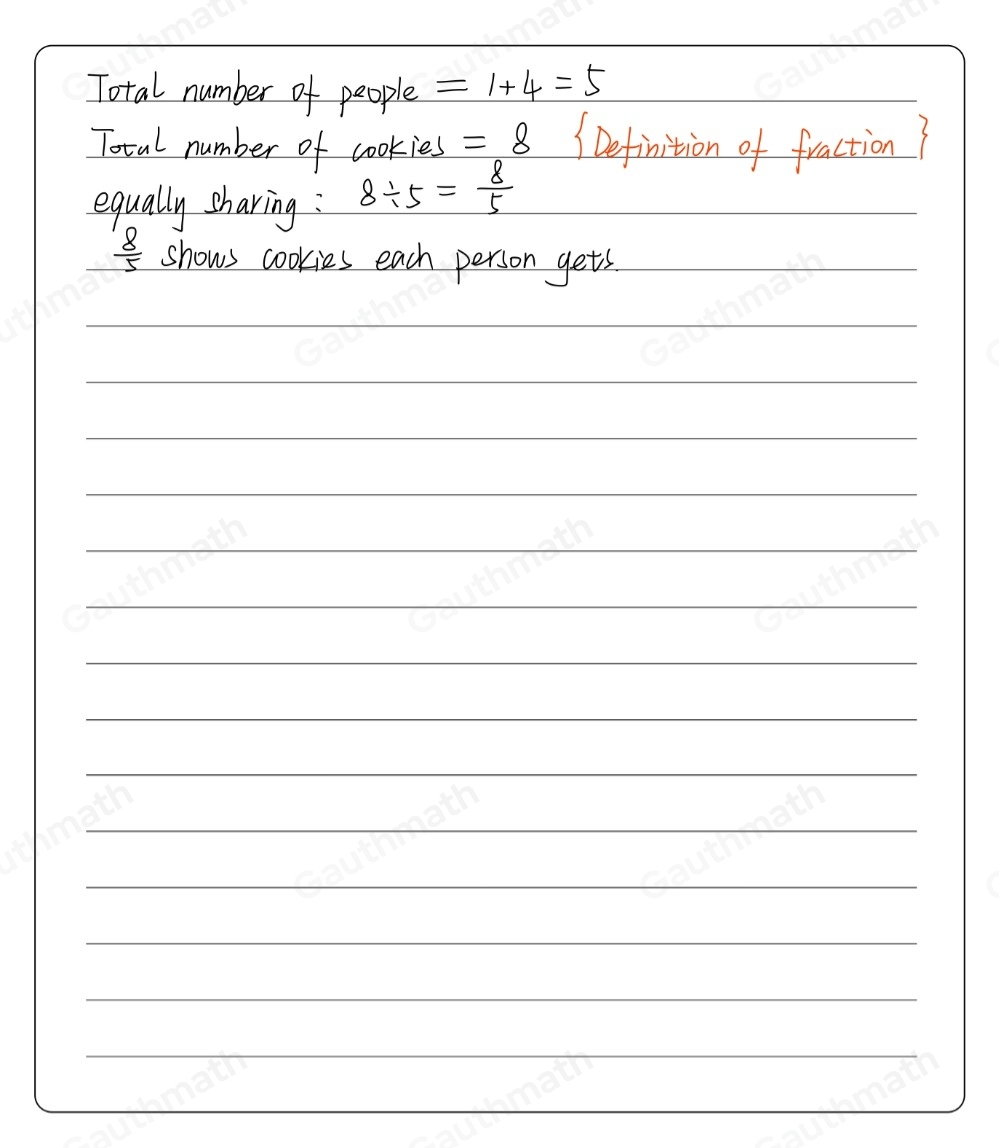 Total number of people = 1+4 = 5
Total number of cookies = 8 {Definition of fraction}
equally sharing: 8÷5 = 8/5
8/5 shows cookies each person gets.
Gauthmath